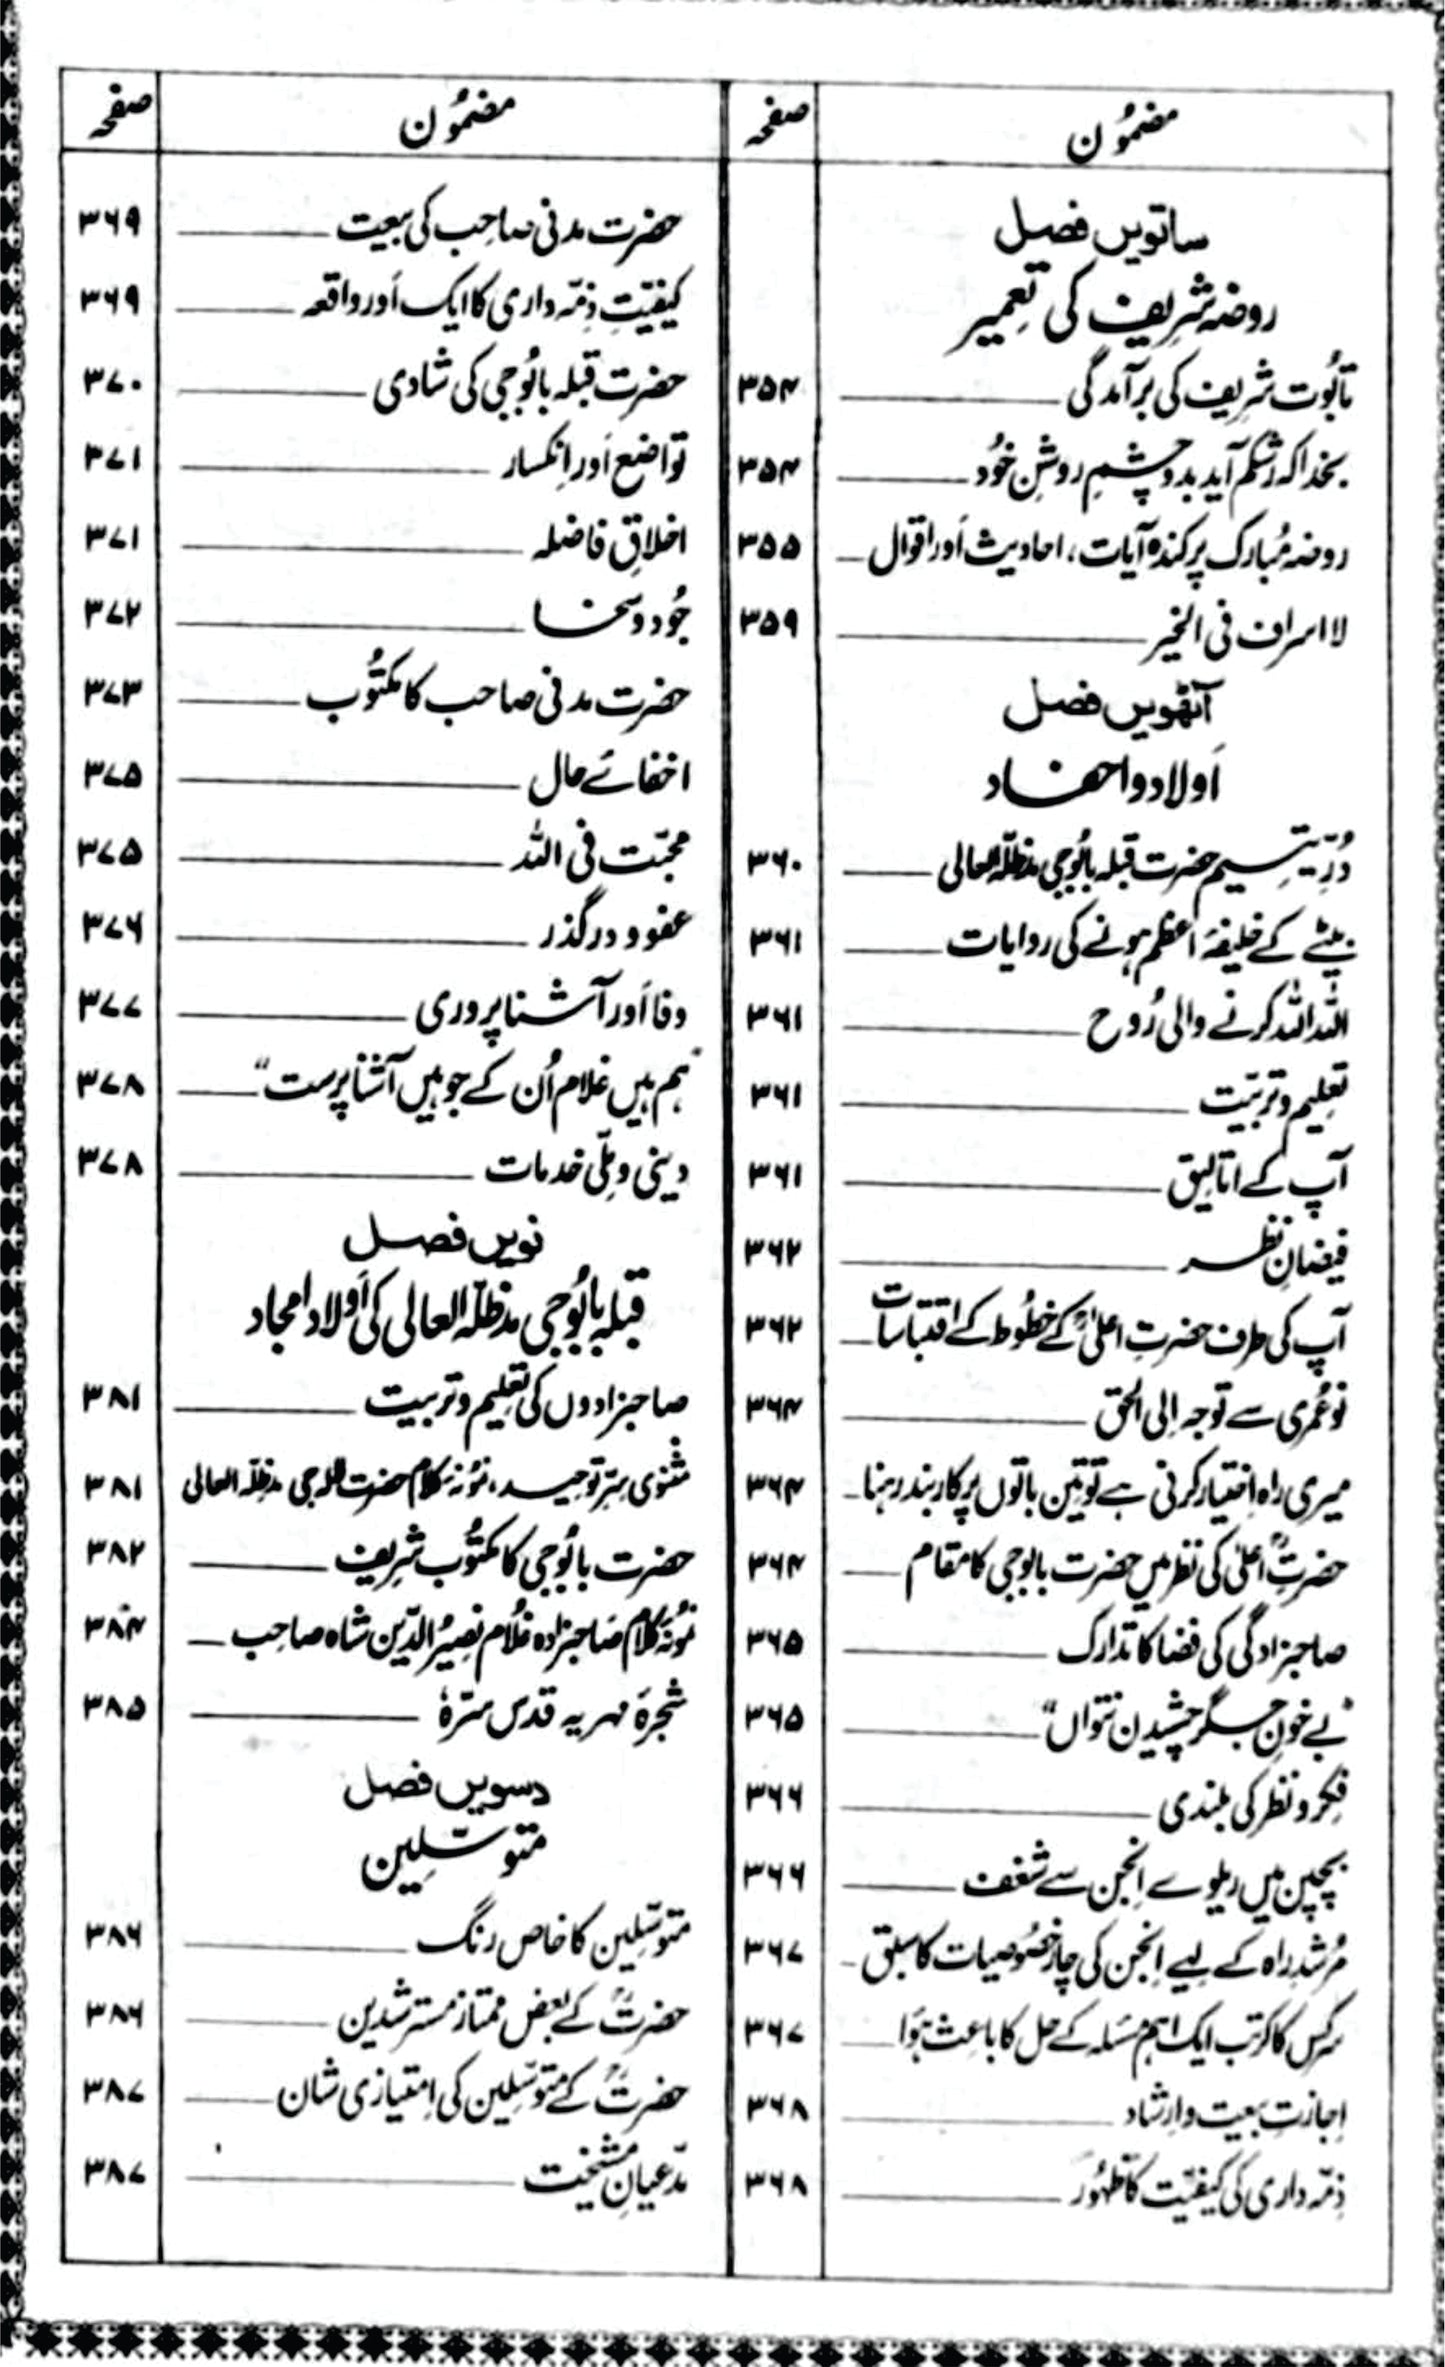 مضمُون صفحہ
ساتویں فصل
روضہ شریف کی تعمیر
تابُوت شریف کی برآمدگی ۳۵۴
بخدا کہ رشکم آید بدو چشمِ روشنِ خُود ۳۵۴
روضہ مُبارک پر کندہ آیات، احادیث اَور اقوال ۳۵۵
لا اسراف فی الخیر ۳۵۹
آٹھویں فصل
اَولاد و احفاد
دُرِّ یتیم حضرت قبلہ بابُوجی مدظلّہ العالی ۳۶۰
بیٹے کے خلیفۂ اعظم ہونے کی روایات ۳۶۱
اللہ اللہ کرنے والی رُوح ۳۶۱
تعلیم و تربیّت ۳۶۱
آپ کے اتالیق ۳۶۱
فیضانِ نظر ۳۶۲
آپ کی طرف حضرتِ اعلیٰؒ کے خطُوط کے اقتباسات ۳۶۲
نوعُمری سے توجہ اِلی الحق ۳۶۴
میری راہ اِختیار کرنی ہے تو تین باتوں پر کاربند رہنا ۳۶۴
حضرتِ اعلیٰؒ کی نظر میں حضرت بابوجی کا مقام ۳۶۴
صاحبزادگی کی فضا کا تدارک ۳۶۵
"بے خونِ جگر چشیدن نتواں" ۳۶۵
فِکر و نظر کی بلندی ۳۶۶
بچپن میں ریلوے اِنجن سے شغف ۳۶۶
مُرشدِ راہ کے لیے اِنجن کی چار خصُوصیات کا سبق ۳۶۷
سرکس کا کرتب ایک اہم مسَلہ کے حل کا باعث ہوَا ۳۶۷
اِجازتِ بیعت و اِرشاد ۳۶۸
ذِمّہ داری کی کیفیّت کا ظہُور ۳۶۸
مضمُون صفحہ
حضرت مدنی صاحِب کی بیعت ۳۶۹
کیفیّتِ ذِمّہ داری کا ایک اَور واقعہ ۳۶۹
حضرت قبلہ بابُوجی کی شادی ۳۷۰
تواضع اَور اِنکسار ۳۷۱
اخلاقِ فاضلہ ۳۷۱
جُود و سخا ۳۷۲
حضرت مدنی صاحب کا مکتُوب ۳۷۳
اخفائے حال ۳۷۵
محبّت فی اللہ ۳۷۵
عفو و درگذر ۳۷۶
وفا اَور آشنا پروری ۳۷۷
"ہم ہیں غلام اُن کے جو ہیں آشنا پرست" ۳۷۸
دینی و مِلّی خدمات ۳۷۸
نویں فصل
قبلہ بابُوجی مدظلّہ العالی کی اَولاد امجاد
صاحبزادوں کی تعلیم و تربیت ۳۸۱
مثنوی سِرِّ توحید، نمُونۂ کلام حضرت للاجی مدظلّہ العالی ۳۸۱
حضرت بابُوجی کا مکتُوب شریف ۳۸۲
نمُونۂ کلام صَاحبزادہ غلُام نصیرُ الدّین شاہ صاحِب ۳۸۴
شجرۂ مہریہ قدس سرّہٗ ۳۸۵
دسویں فصل
متوسّلِین
متوسّلِین کا خاص رنگ ۳۸۶
حضرتؒ کے بعض ممتاز مسترشدین ۳۸۶
حضرتؒ کے متوسّلِین کی اِمتیازی شان ۳۸۷
مدّعیانِ مشیخت ۳۸۷